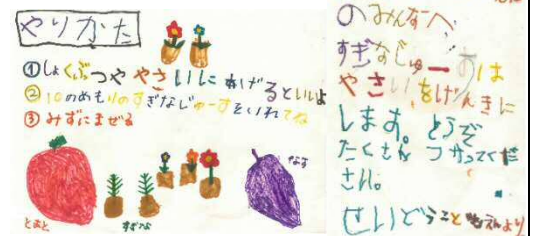 やりかた
①しょくぶつや やさいに あげるといいよ
②10のめもりのすぎなじゅーすをいれてね
③みずにまぜる
とまと
すぎな
なす
のみんなへ
すぎなじゅーすは
やさいをげんきに
します。どうぞ
たくさん つかってくだ
さい。
せいどう こども えんより